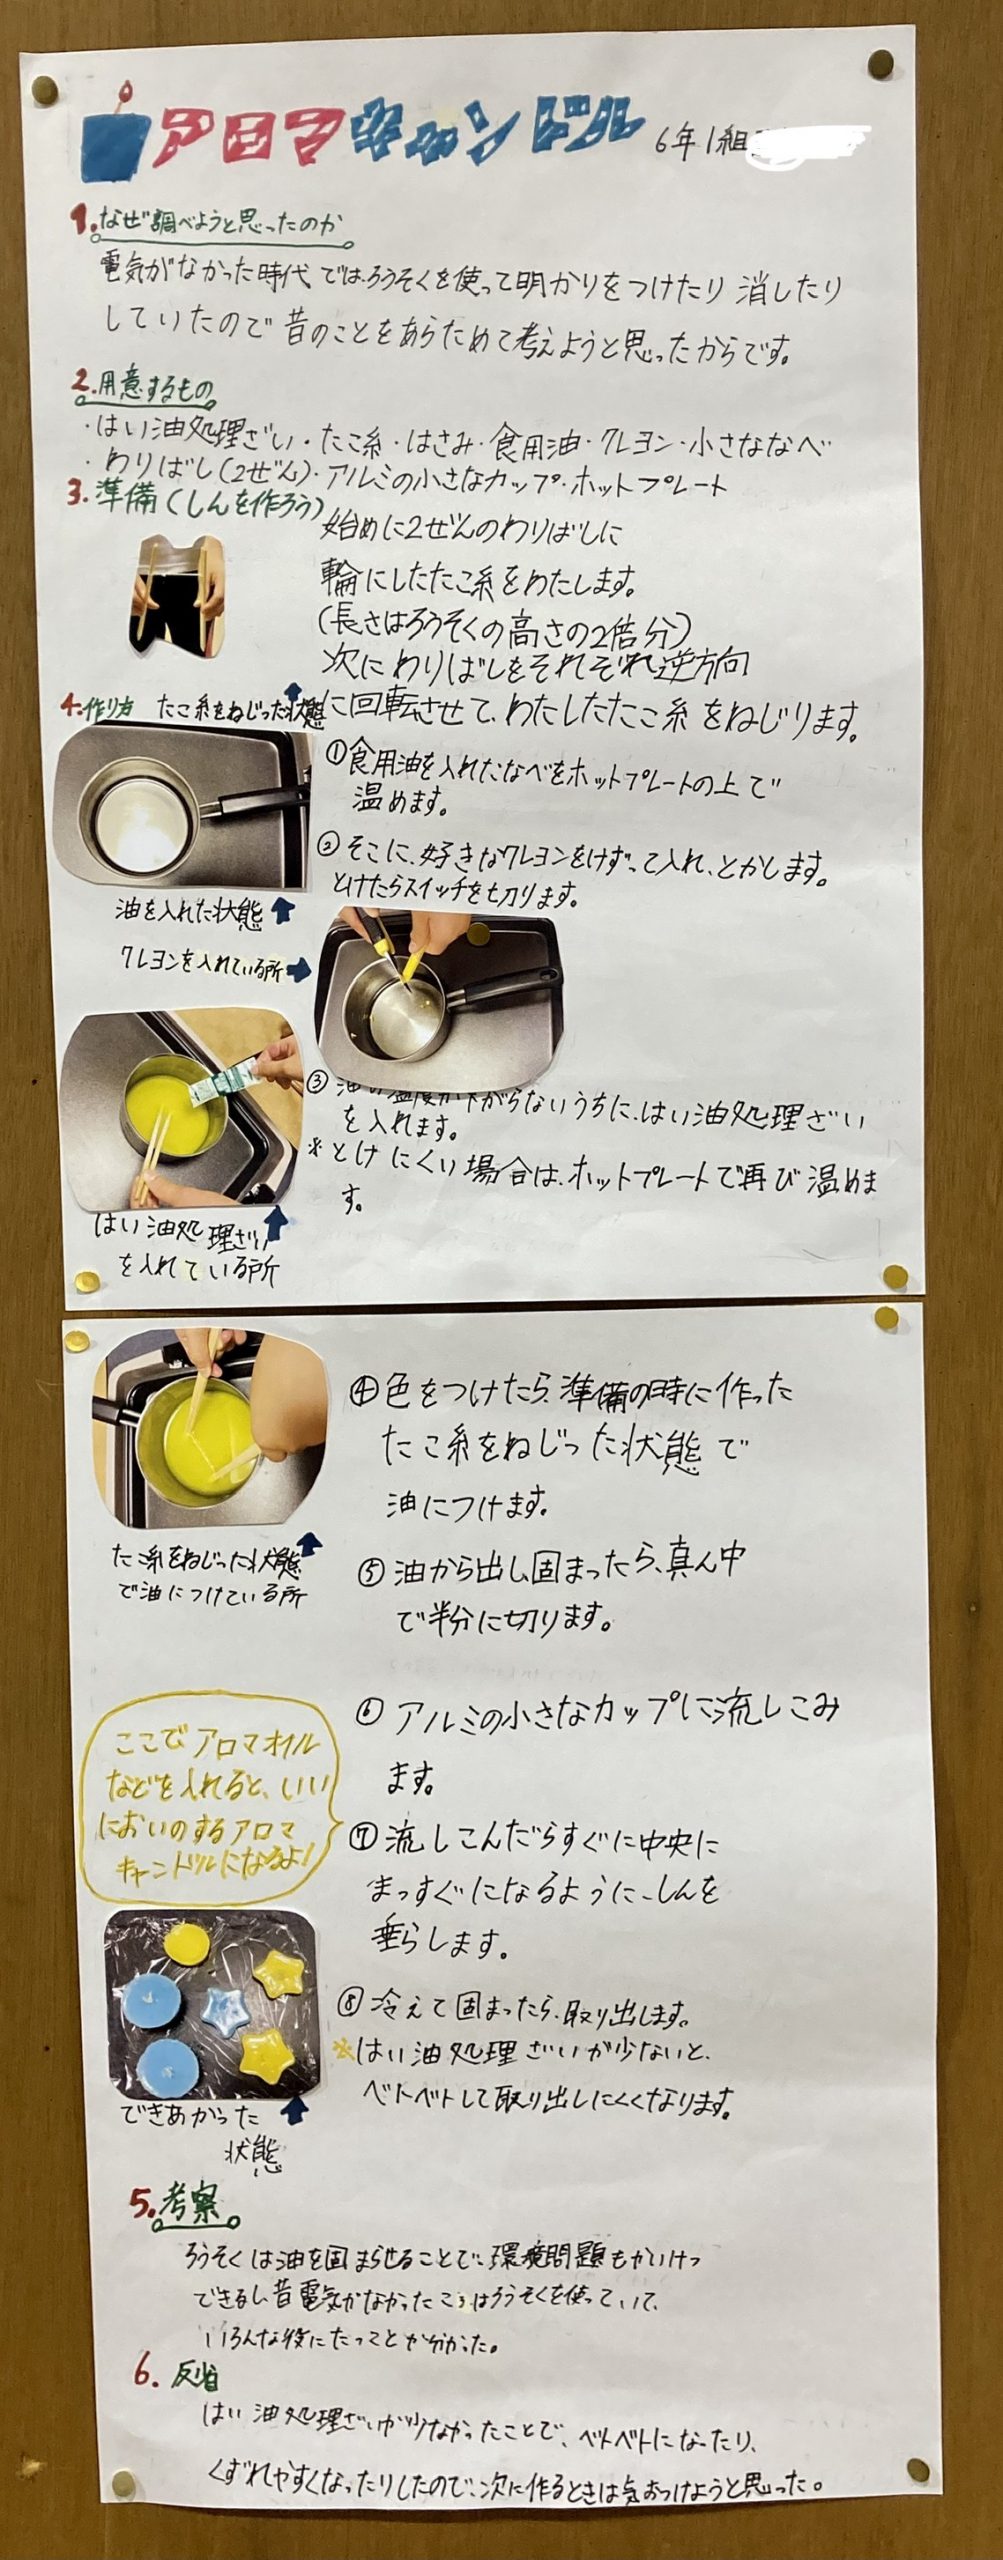 アロマキャンドル
6年1組
1.なぜ調べようと思ったのか
電気がなかった時代では、ろうそくを使って明かりをつけたり消したり
していたので昔のことをあらためて考えようと思ったからです。
2.用意するもの
・はい油処理ざい・たこ糸・はさみ・食用油・クレヨン・小さななべ
・わりばし(2ぜん)・アルミの小さなカップ・ホットプレート
3.準備(しんを作ろう)
始めに2ぜんのわりばしに
輪にしたたこ糸をわたします。
(長さはろうそくの高さの2倍分)
次にわりばしをそれぞれ逆方向
に回転させて、わたしたたこ糸をねじります。
たこ糸をねじった状態
4.作り方
①食用油を入れたなべをホットプレートの上で
温めます。
②そこに、好きなクレヨンをけずって入れ、とかします。
とけたらスイッチを切ります。
油を入れた状態
クレヨンを入れている所
③油の温度が下がらないうちに、はい油処理ざい
を入れます。
※とけにくい場合は、ホットプレートで再び温めま
す。
はい油処理ざい
を入れている所
④色をつけたら、準備の時に作った
たこ糸をねじった状態で
油につけます。
たこ糸をねじった状態
で油につけている所
⑤油から出し、固まったら、真ん中
で半分に切ります。
⑥アルミの小さなカップに流しこみ
ます。
ここでアロマオイル
などを入れると、いい
においのするアロマ
キャンドルになるよ!
⑦流しこんだらすぐに中央に
まっすぐになるように、しんを
垂らします。
⑧冷えて固まったら、取り出します。
※はい油処理ざいが少ないと、
ベトベトして取り出しにくくなります。
できあがった
状態
5.考察
ろうそくは油を固まらせることで、環境問題もかいけつ
できるし、昔電気がなかったころはろうそくを使っていて、
いろんな役にたってことが分かった。
6.反省
はい油処理ざいが少なかったことで、ベトベトになったり、
くずれやすくなったりしたので、次に作るときは気おつけようと思った。